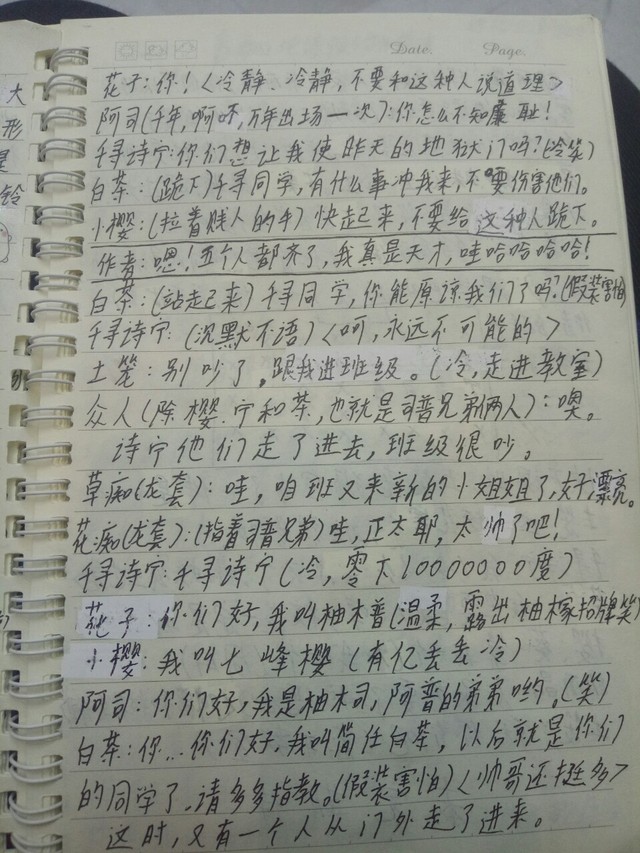 Date. Page.
花子:你!<冷静、冷静,不要和这种人说道理>
阿司(千年,啊呸,万年出场一次):你怎么不知廉耻!
千寻诗宁:你们想让我使昨天的地狱门吗?(冷笑)
白茶:(跪下)千寻同学,有什么事冲我来,不要伤害他们。
小樱:(拉着贱人的手)快起来,不要给这种人跪下。
作者:嗯!五个人都齐了,我真是天才,哇哈哈哈哈!
白茶:(站走起来)千寻同学,你能原谅我们了吗?(假装害怕)
千寻诗宁:(沉默不语)<呵,永远不可能的>
土笼:别吵了,跟我进班级。(冷,走进教室)
众人(除樱、宁和茶,也就是司普兄弟俩人):噢。
诗宁他们走了进去,班级很吵。
草痴(龙套):哇,咱班又来新的小姐姐了,好漂亮。
花痴(龙套):(指着司普兄弟)哇,正太耶,太帅了吧!
千寻诗宁:千寻诗宁(冷,零下10000000度)
花子:你们好,我叫柚木普(温柔,露出柚椽招牌笑)
小樱:我叫七峰樱(有亿丢丢冷)
阿司:你们好,我是柚木司,阿普的弟弟哟。(笑)
白茶:你...你们好,我叫简任白茶,以后就是你们
的同学了,请多多指教。(假装害怕)<帅哥还挺多>
这时,又有一个人从门外走了进来。
大
形
是
铃